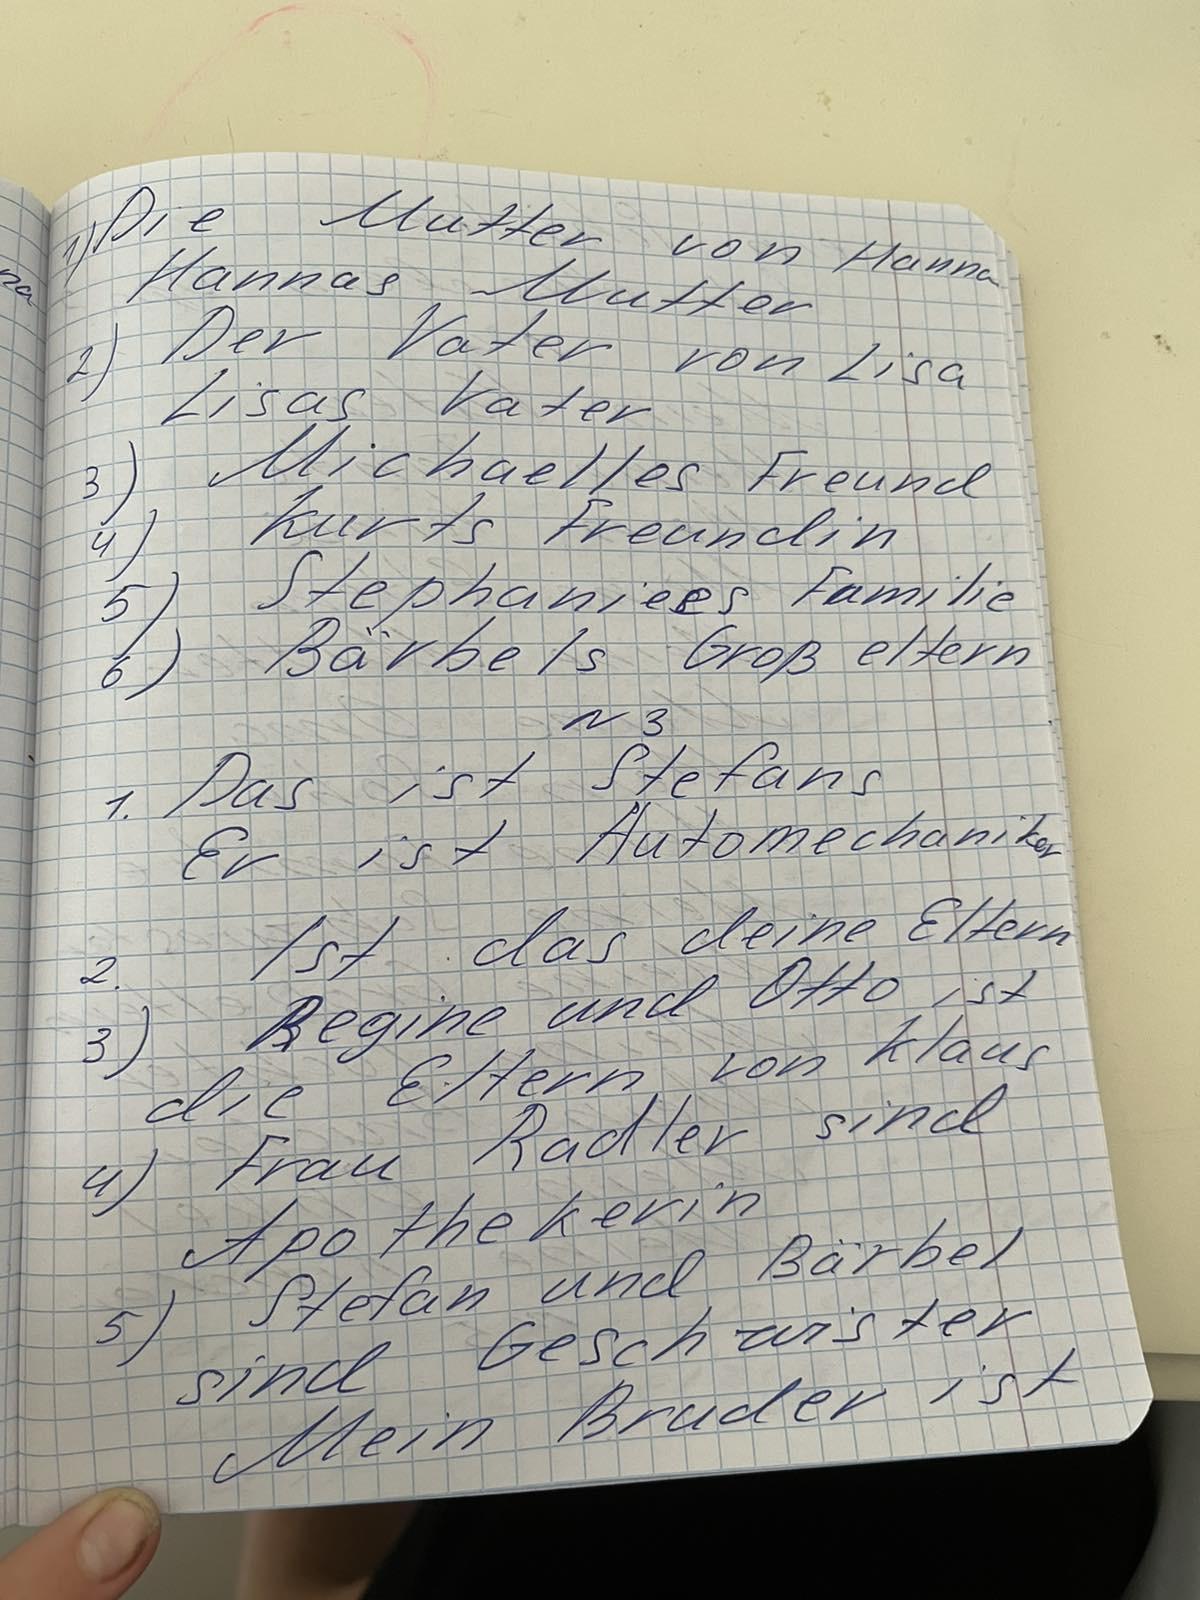 na
1) Die Mutter von Hanna
Hannas Mutter
2) Der Vater von Lisa
Lisas Vater
3) Michaelles Freund
4) Kurts Freundin
5) Stephaniees Familie
6) Bärbels Großeltern
N 3
1. Das ist Stefans
Er ist Automechaniker
2. Ist das deine Eltern
3) Regine und Otto ist
die Eltern von Klaus
4) Frau Radler sind
Apothekerin
5) Stefan und Bärbel
sind Geschwister
Mein Bruder ist